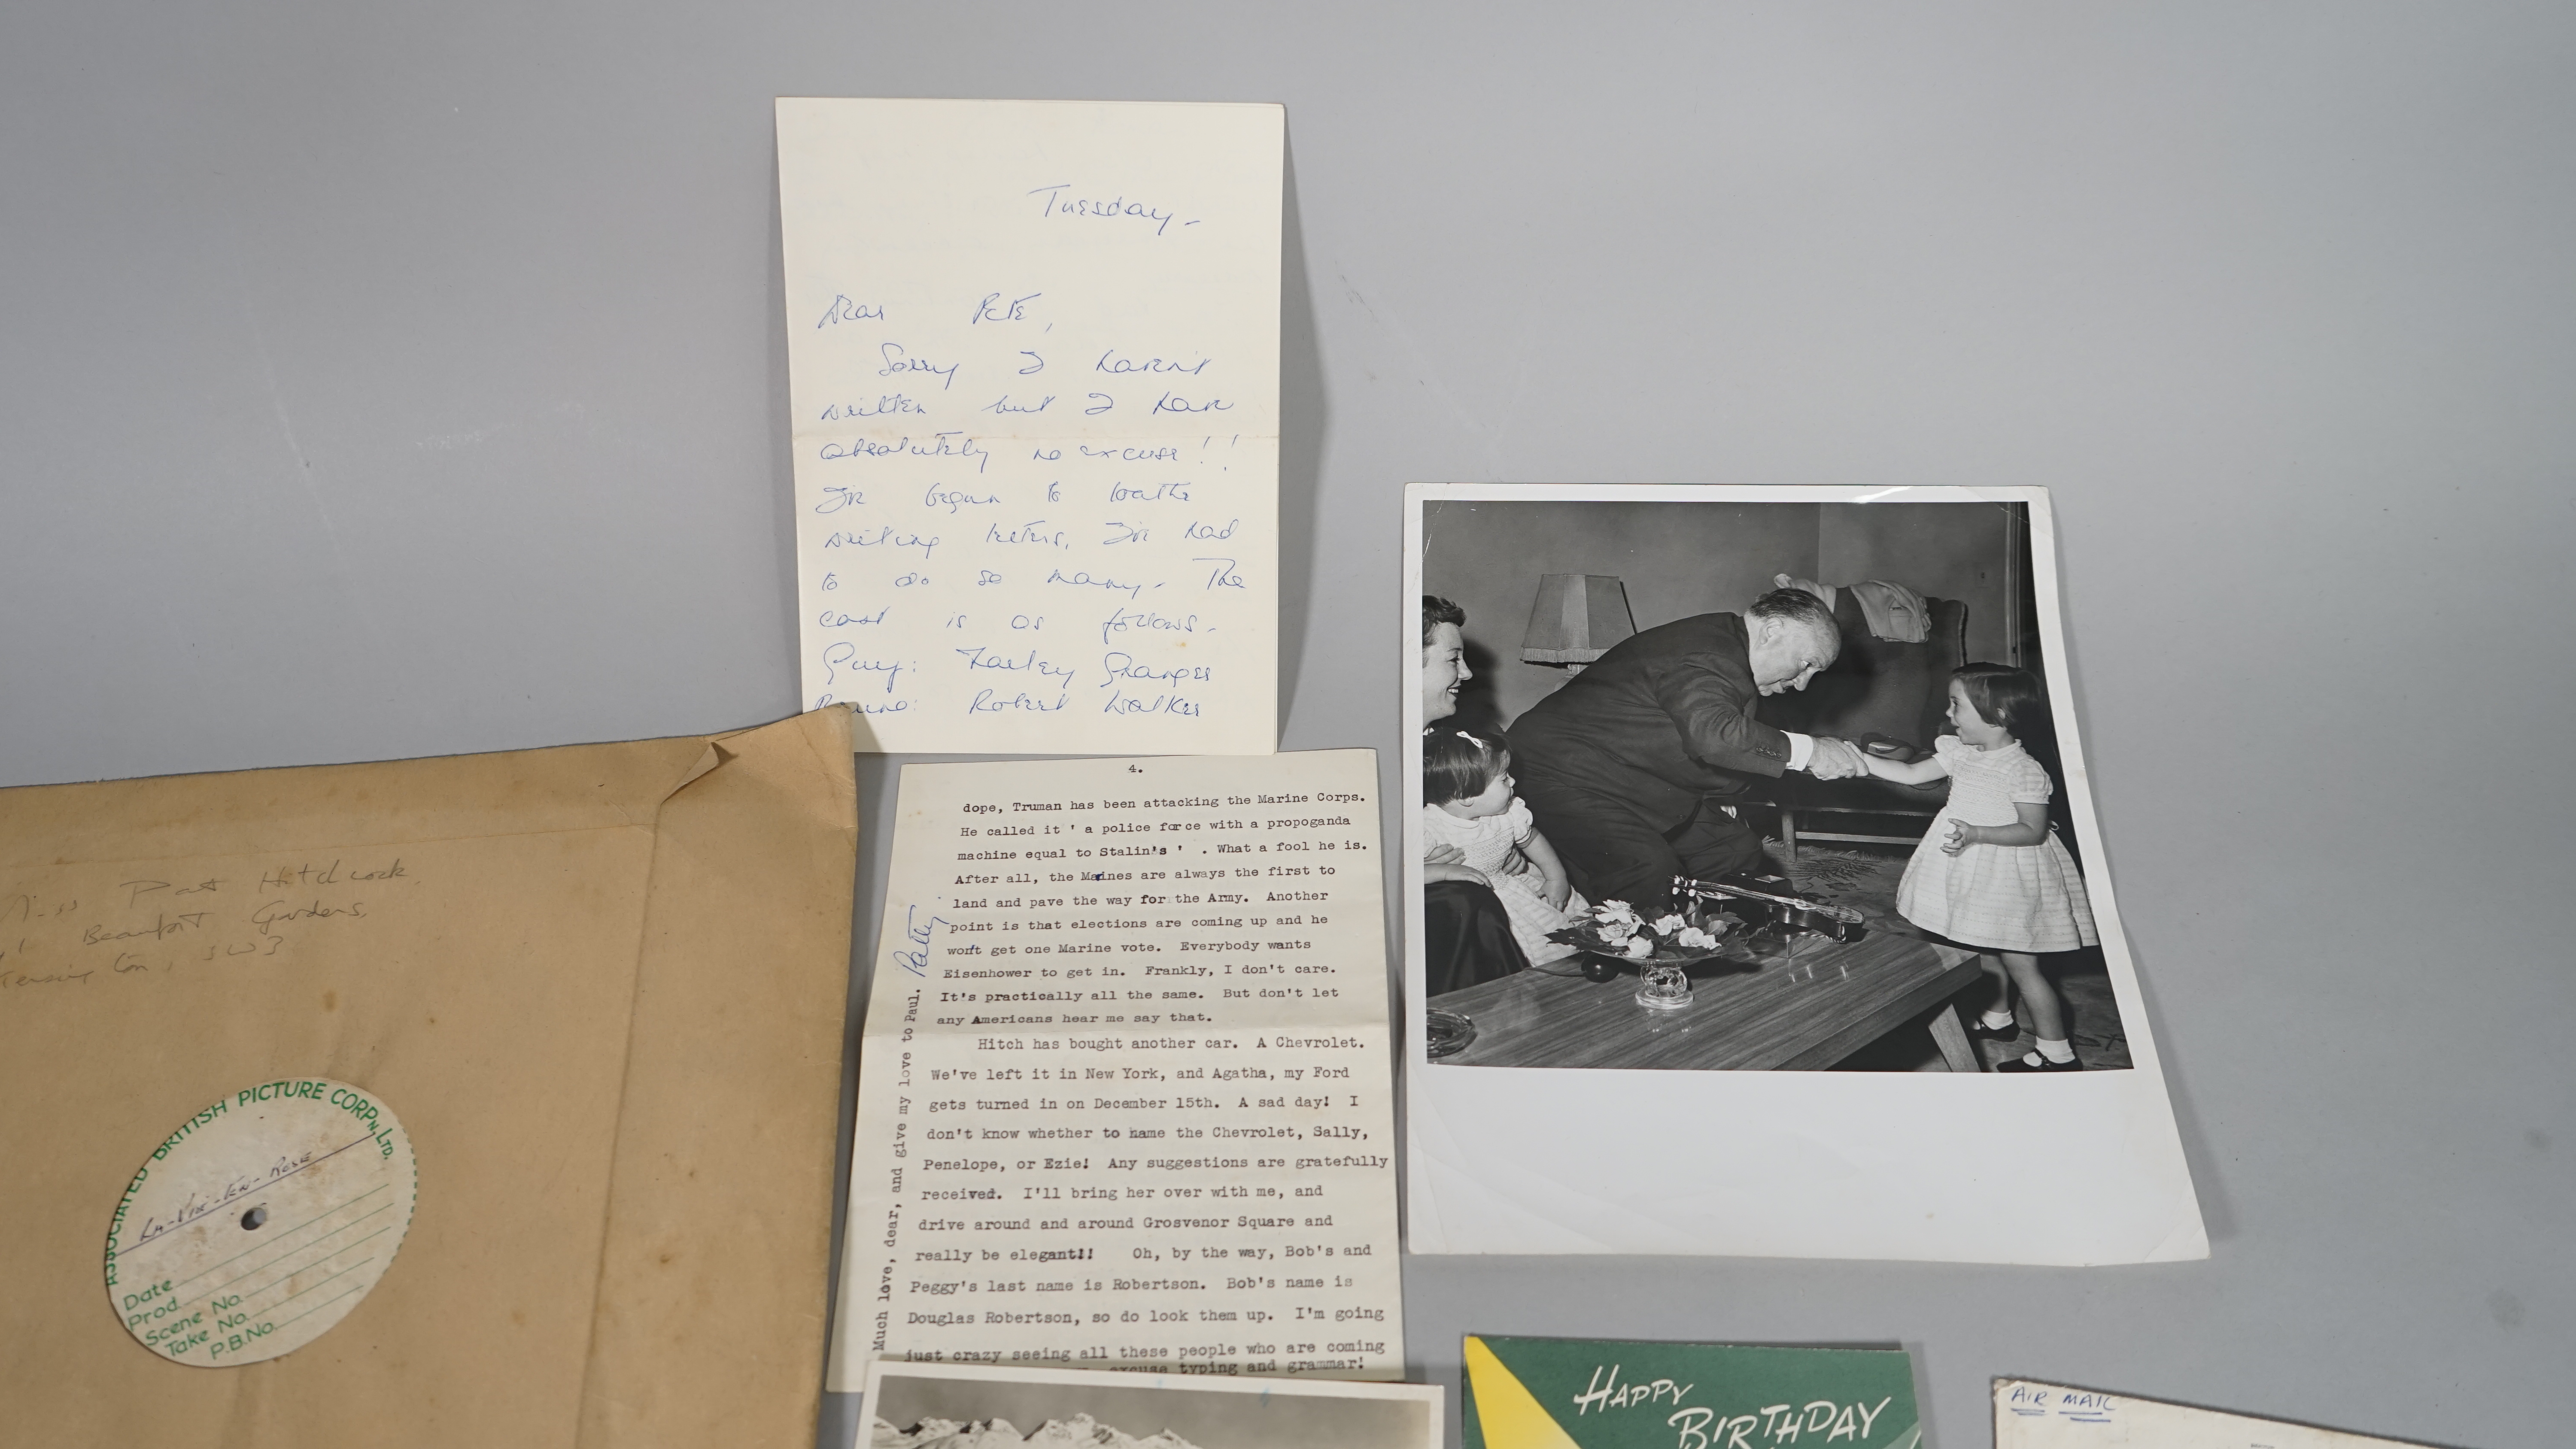 Tuesday -
Dear Pete,
Sorry I haven't
written but I have
absolutely no excuse!!
I've begun to loathe
writing letters, I've had
to do so many - The
cast is as follows -
Guy: Farley Granger
Bruno: Robert Walker
4.
dope, Truman has been attacking the Marine Corps.
He called it ' a police force with a propoganda
machine equal to Stalin's ' . What a fool he is.
After all, the Marines are always the first to
land and pave the way for the Army. Another
point is that elections are coming up and he
won't get one Marine vote. Everybody wants
Eisenhower to get in. Frankly, I don't care.
It's practically all the same. But don't let
any Americans hear me say that.
Hitch has bought another car. A Chevrolet.
We've left it in New York, and Agatha, my Ford
gets turned in on December 15th. A sad day! I
don't know whether to name the Chevrolet, Sally,
Penelope, or Ezie! Any suggestions are gratefully
received. I'll bring her over with me, and
drive around and around Grosvenor Square and
really be elegant!!! Oh, by the way, Bob's and
Peggy's last name is Robertson. Bob's name is
Douglas Robertson, so do look them up. I'm going
just crazy seeing all these people who are coming
excuse typing and grammar!
Much love, dear, and give my love to Paul. Patty
Miss Pat Hitchcock,
Beaufort Gardens,
SW3
ASSOCIATED BRITISH PICTURE CORPN, LTD.
La-Vie-En-Rose
Date
Prod.
Scene No.
Take No.
P.B.No.
HAPPY
BIRTHDAY
AIR MAIL